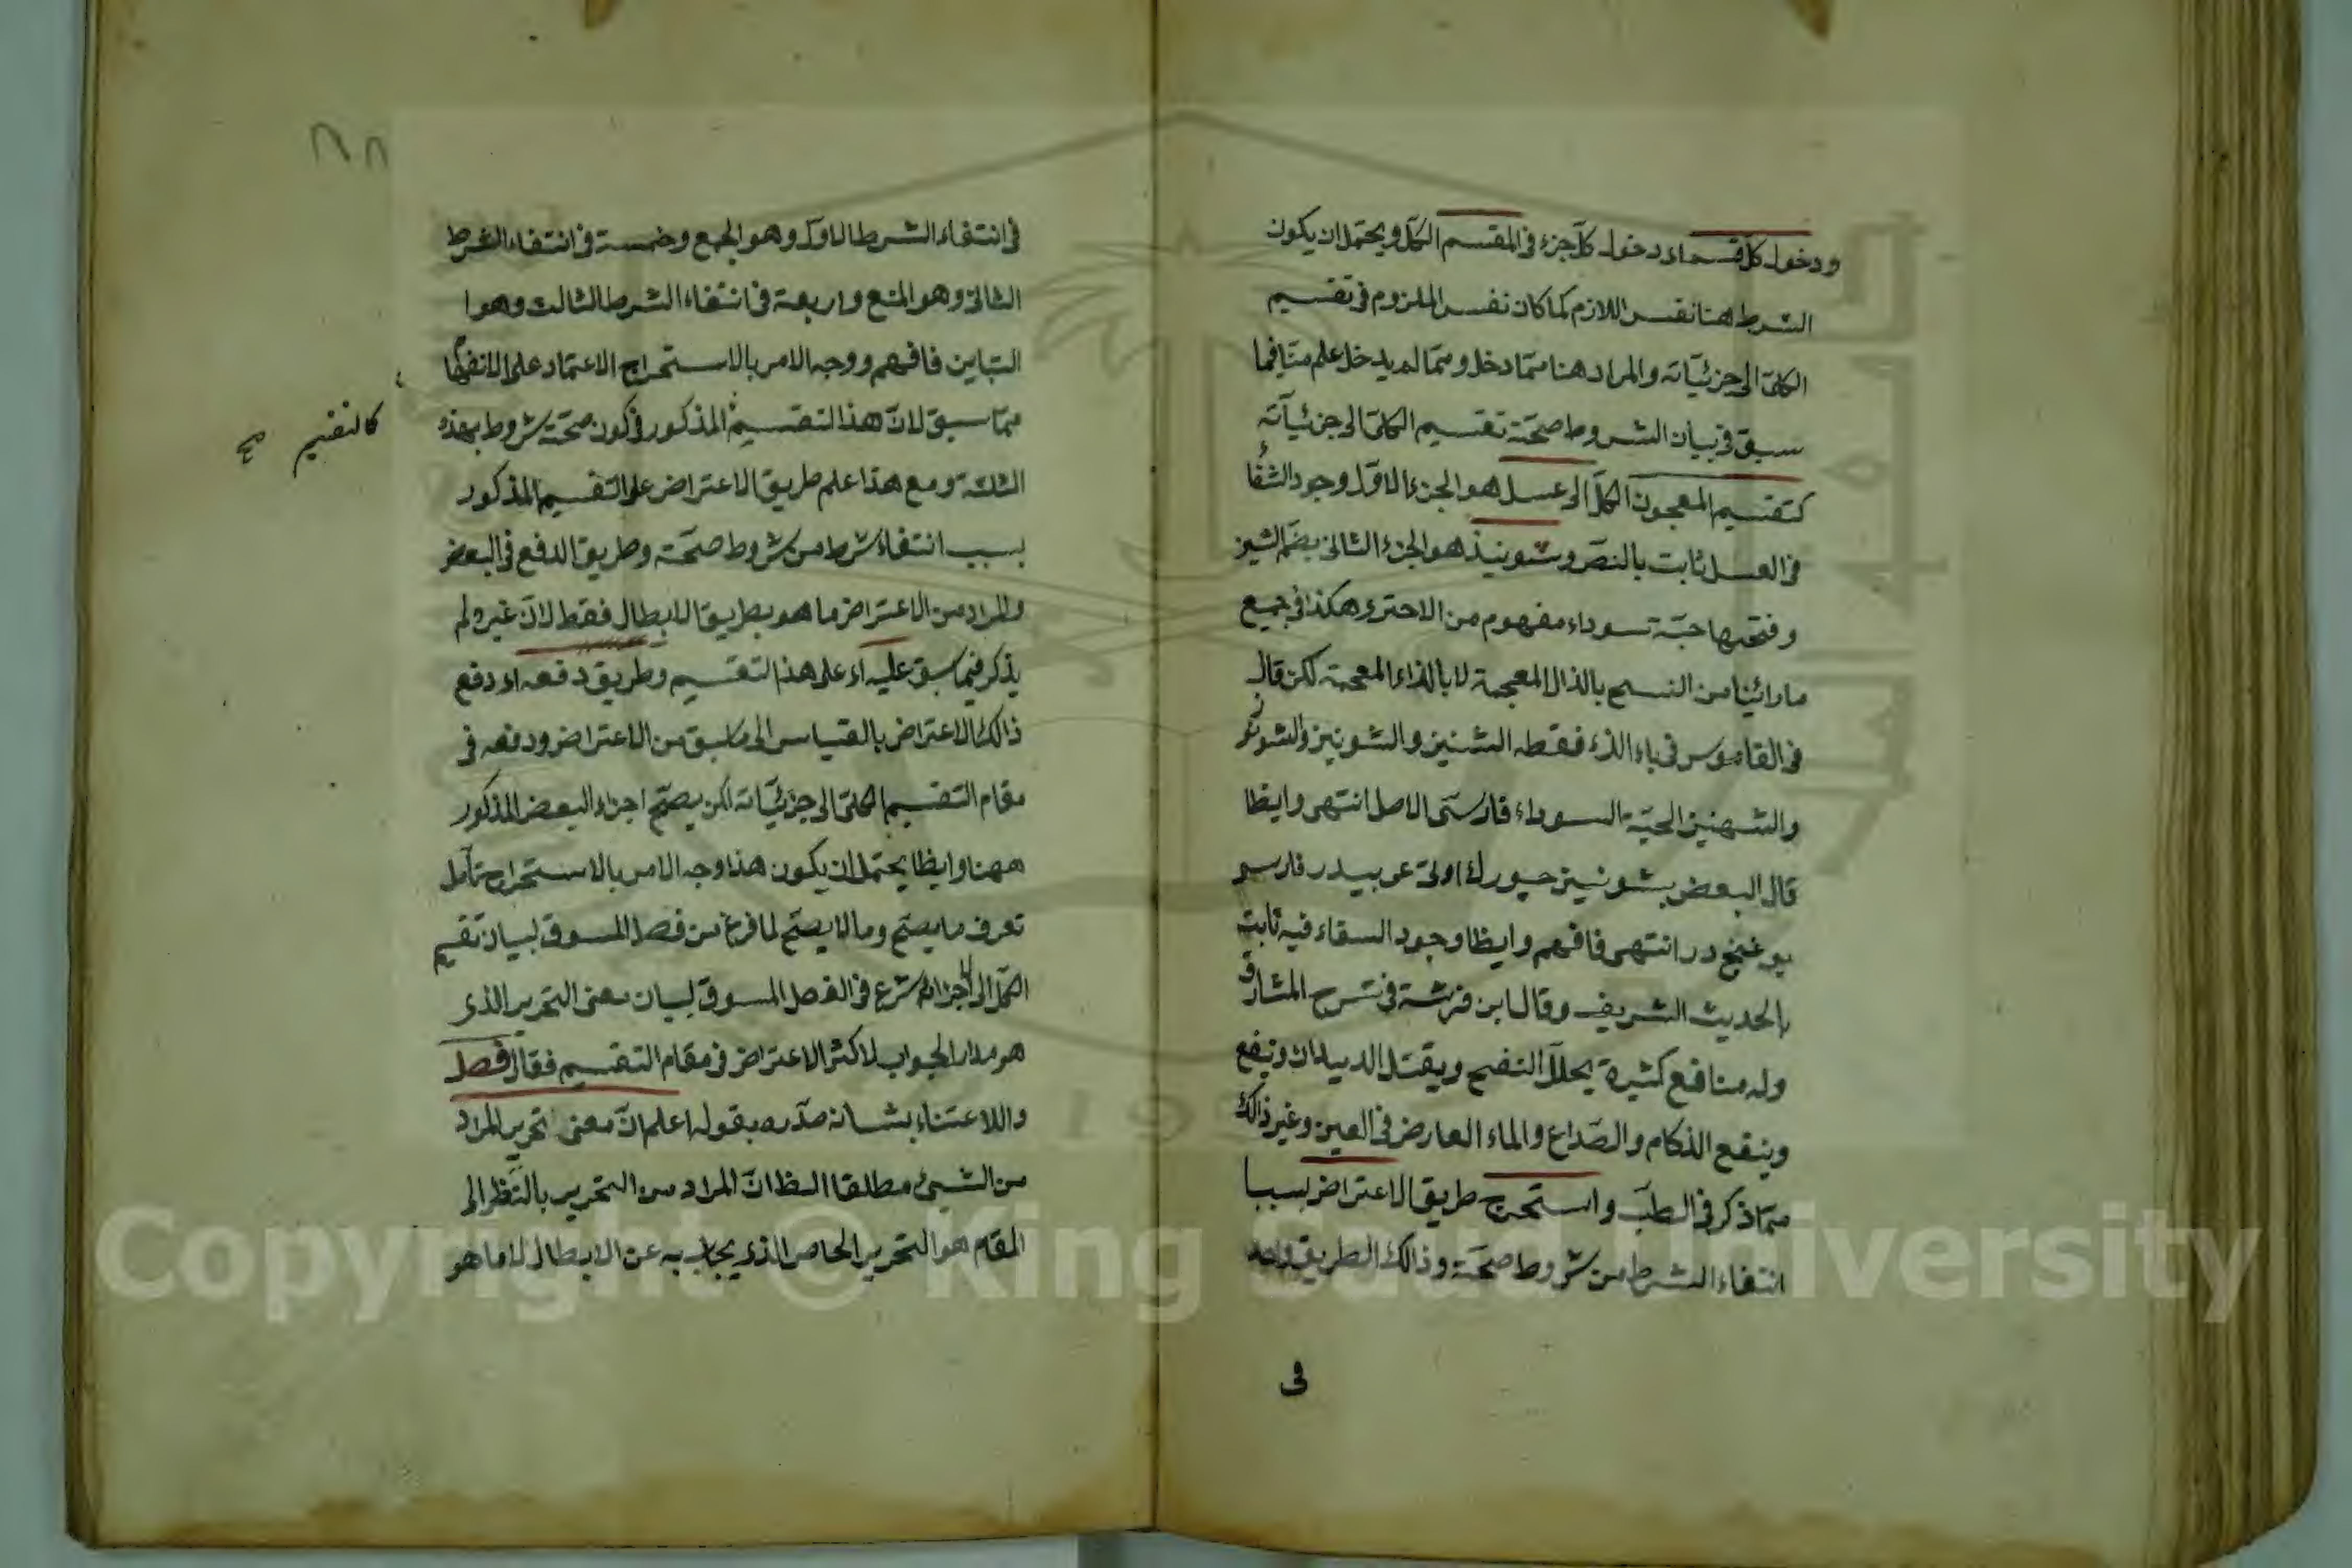 ودخول كل قسم اى دخول كل جزء فى المقسم الكل ويحتمل ان يكون
الشرط هنا نفس اللازم كما كان نفس الملزوم فى تقسيم
الكلى الى جزئياته والمراد هنا مما دخل ومما لم يدخل علم منا فيما
سبق فى بيان الشروط صحته تقسيم الكلى الى جزئياته
كتقسيم المعجون الكل الى عسل هو الجزء الاول وجود الشفاء
فى العسل ثابت بالنص وشوينيذ هو الجزء الثانى بضم الشين
وفتحها حبة سوداء مفهوم من الاخترى هكذا فى جميع
ما رائينا من النسخ بالذال المعجمة لا بالذاء المعجمة لكن قال
فى القاموس فى باء الذء فقطه الشنيز والشونيز والشونوز
والشهنيز الحبة السوداء فارسى الاصل انتهى وايظا
قال البعض بشونيز جيورك اوتى عربيدر فارسو
در انتهى فافهم وايظا وجود السفاء فيه ثابت
بالحديث الشريف وقال ابن فرشته فى شرح المشارق
وله منافع كثيرة يحلل النفخ ويقتل الديدان وينفع
وينفع الذكام والصداع والماء العارض فى العين وغير ذالك
مما ذكر فى الطب واستخرج طريق الاعتراض بسبب
انتفاء الشرط من شروط صحته وذالك الطريق واحد
فى
فى انتفاء الشرط الاول وهو الجمع وخمسة فى انتفاء الشرط
الثانى وهو المنع واربعة فى انتفاء الشرط الثالث وهو
التباين فافهم ووجه الامر بالاستخراج الاعتماد على الانفهام
مما سبق لان هذا التقسيم المذكور فى كون صحته شروط بهذه
كالتقسيم صح
الثلثة ومع هذا علم طريق الاعتراض على التقسيم المذكور
بسبب انتفاء شرط من شروط صحته وطريق الدفع فى البعض
والمراد من الاعتراض ما هو بطريق الابطال فقط لان غيره لم
يذكر فيما سبق عليه اى على هذا التقسيم وطريق دفعه اى دفع
ذالك الاعتراض بالقياس الى ما سبق من الاعتراض ودفعه فى
مقام التقسيم الكلى الى جزئياته لكن يصح اجزاء البعض المذكور
ههنا وايظا يحتمل ان يكون هذا وجه الامر بالاستخراج تأمل
تعرف ما يصح وما لا يصح لما فرغ من فصل المسوق لبيان تقسيم
الكل الى الاجزاء شرع فى الفصل المسوق لبيان معنى التحرير الذى
هو مدار الجواب لاكثر الاعتراض فى مقام التقسيم فقال فصل
واللاعتناء بشانه صدره بقوله اعلم ان معنى تحرير المراد
من الشيئ مطلقا الظ ان المراد من التحرير بالنظر الى
المقام هو التحرير الخاص الذى يجاب به عن الابطال لا ما هو
Copyright © King Saud University